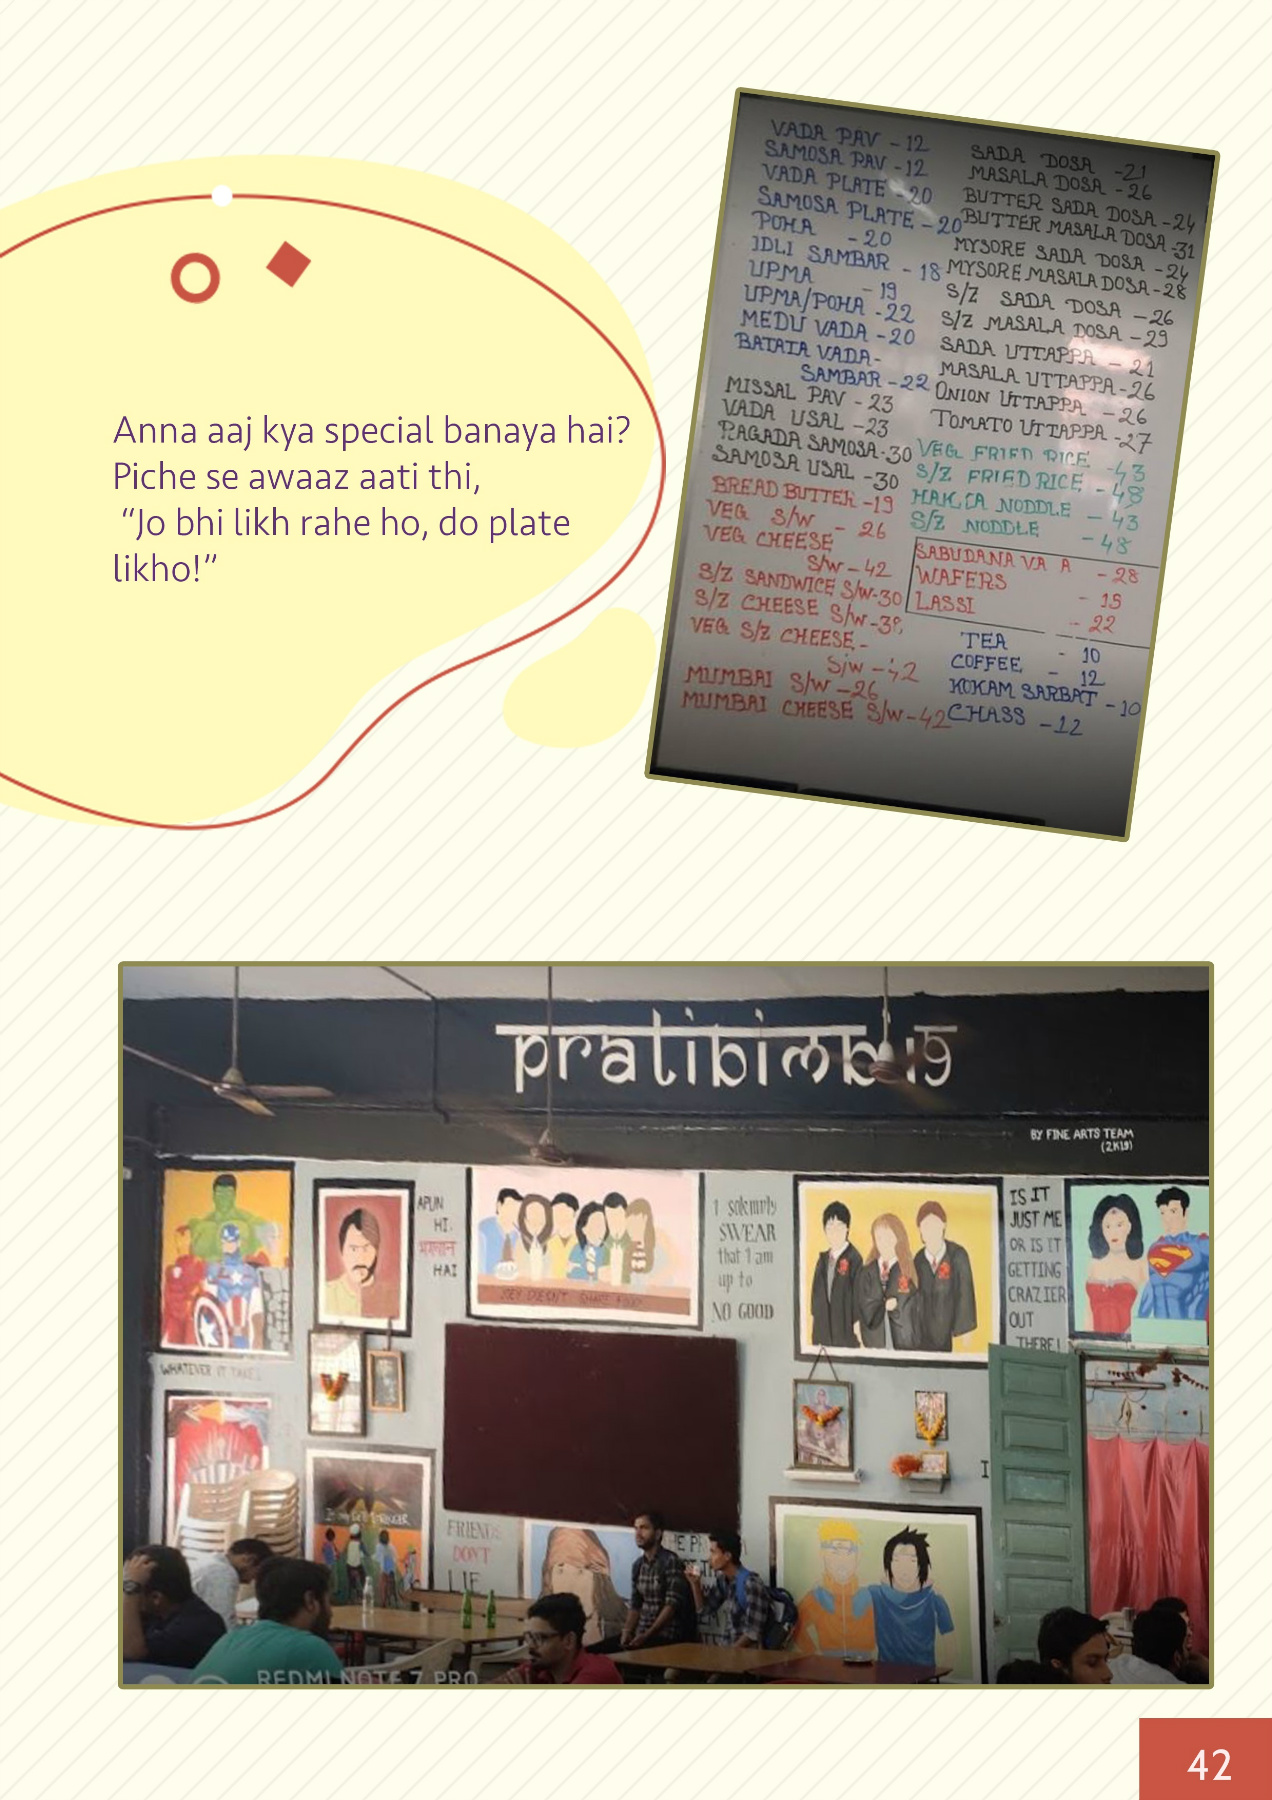 Anna aaj kya special banaya hai?
Piche se awaaz aati thi,
“Jo bhi likh rahe ho, do plate
likho!”
VADA PAV - 12
SAMOSA PAV - 12
VADA PLATE - 20
SAMOSA PLATE - 20
POHA - 20
IDLI SAMBAR - 18
UPMA - 19
UPMA/POHA - 22
MEDU VADA - 20
BATATA VADA-
SAMBAR - 22
MISSAL PAV - 23
VADA USAL - 23
RAGADA SAMOSA - 30
SAMOSA USAL - 30
BREAD BUTTER - 19
VEG S/W - 26
VEG CHEESE
S/W - 42
S/Z SANDWICE S/W-30
S/Z CHEESE S/W-
VEG S/Z CHEESE -
S/W - 42
MUMBAI S/W - 26
MUMBAI CHEESE S/W - 42
SADA DOSA - 21
MASALA DOSA - 26
BUTTER SADA DOSA - 24
BUTTER MASALA DOSA - 31
MYSORE SADA DOSA - 24
MYSORE MASALA DOSA - 28
S/Z SADA DOSA - 26
S/Z MASALA DOSA - 29
SADA UTTAPPA - 21
MASALA UTTAPPA - 26
ONION UTTAPPA - 26
TOMATO UTTAPPA - 27
VEG FRIED RICE - 43
S/Z FRIED RICE - 48
HAKKA NODDLE - 43
S/Z NODDLE - 48
SABUDANA VA A - 28
WAFERS - 15
LASSI - 22
TEA - 10
COFFEE - 12
KOKAM SARBAT - 10
CHASS - 12
pratibimb 19
BY FINE ARTS TEAM
(2K19)
APUN
HI
भगवान
HAI
JOEY DOESN'T SHARE FOOD
I solemnly
SWEAR
that I am
up to
NO GOOD
IS IT
JUST ME
OR IS IT
GETTING
CRAZIER
OUT
THERE!
WHATEVER IT TAKES
FRIENDS
DON'T
LIE
REDMI NOTE 7 PRO
42